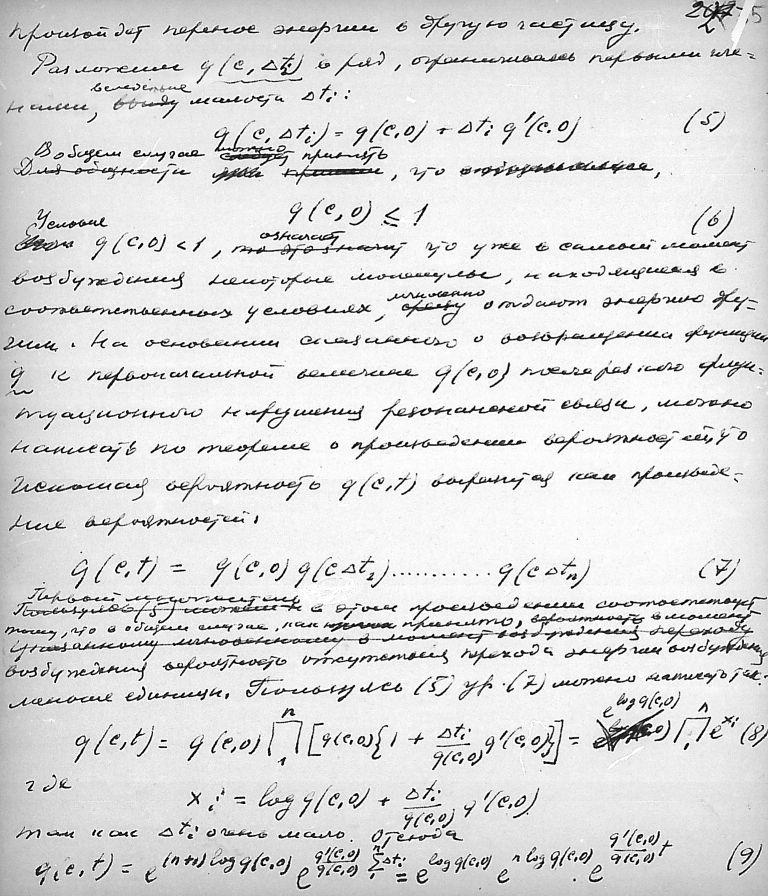 207 2 5
произойдет перенос энергии в другую частицу.
Разложим q(c, Δtᵢ) в ряд, ограничиваясь первыми чле-
вследствие
нами, ввиду малости Δtᵢ:
q(c, Δtᵢ) = q(c,0) + Δtᵢ q'(c,0) (5)
В общем случае можно принять
Для общности что
q(c,0) ≤ 1 (6)
Условие означает
q(c,0) < 1, то это значит что уже в самый момент
возбуждения некоторые молекулы, находящиеся в
мгновенно
соответственных условиях, сразу отдают энергию дру-
гим. На основании сказанного о возвращении функции
q к первоначальной величине q(c,0) после разного флук-
туационного нарушения резонансной связи, можно
написать по теореме о произведении вероятностей, что
искомая вероятность q(c,t) выразится как произведе-
ние вероятностей:
q(c,t) = q(c,0) q(cΔt₂).......... q(cΔtₙ) (7)
Первый множитель
Пользуясь (5) можем в этом произведении соответствует
тому, что в общем случае, как принято, вероятность в момент
указанному мгновенному в момент возбуждения переходу
возбуждения вероятность отсутствия перехода энергии возбуждения
меньше единицы. Пользуясь (5) ур. (7) можно написать так:
q(c,t) = q(c,0) ∏₁ⁿ [q(c,0){1 + Δtᵢ/q(c,0) q'(c,0)}] = e^{log q(c,0)} ∏₁ⁿ e^{xᵢ} (8)
где
xᵢ = log q(c,0) + Δtᵢ/q(c,0) q'(c,0)
так как Δtᵢ очень мало. Отсюда
q(c,t) = e^{(n+1) log q(c,0)} e^{q'(c,0)/q(c,0) Σ₁ⁿ Δtᵢ} = e^{log q(c,0)} e^{n log q(c,0)} . e^{q'(c,0)/q(c,0) t} (9)